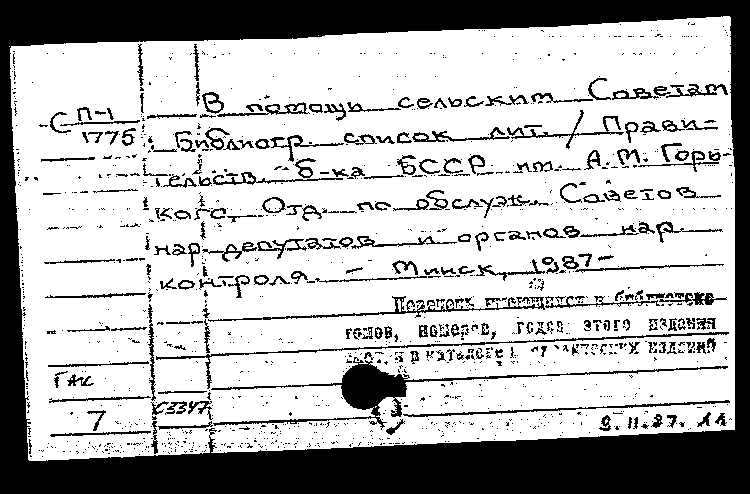 СП-1
1775
В помощь сельским Советам
: Библиогр. список лит. / Прави-
тельств. б-ка БССР им. А.М. Горь-
кого, Отд. по обслуж. Советов
нар. депутатов и органов нар.
контроля. – Минск, 1987–
Перечень имеющихся в библиотеке
томов, номеров, годов этого издания
в каталоге изданий
Гак
7
С3347
9.11.87.